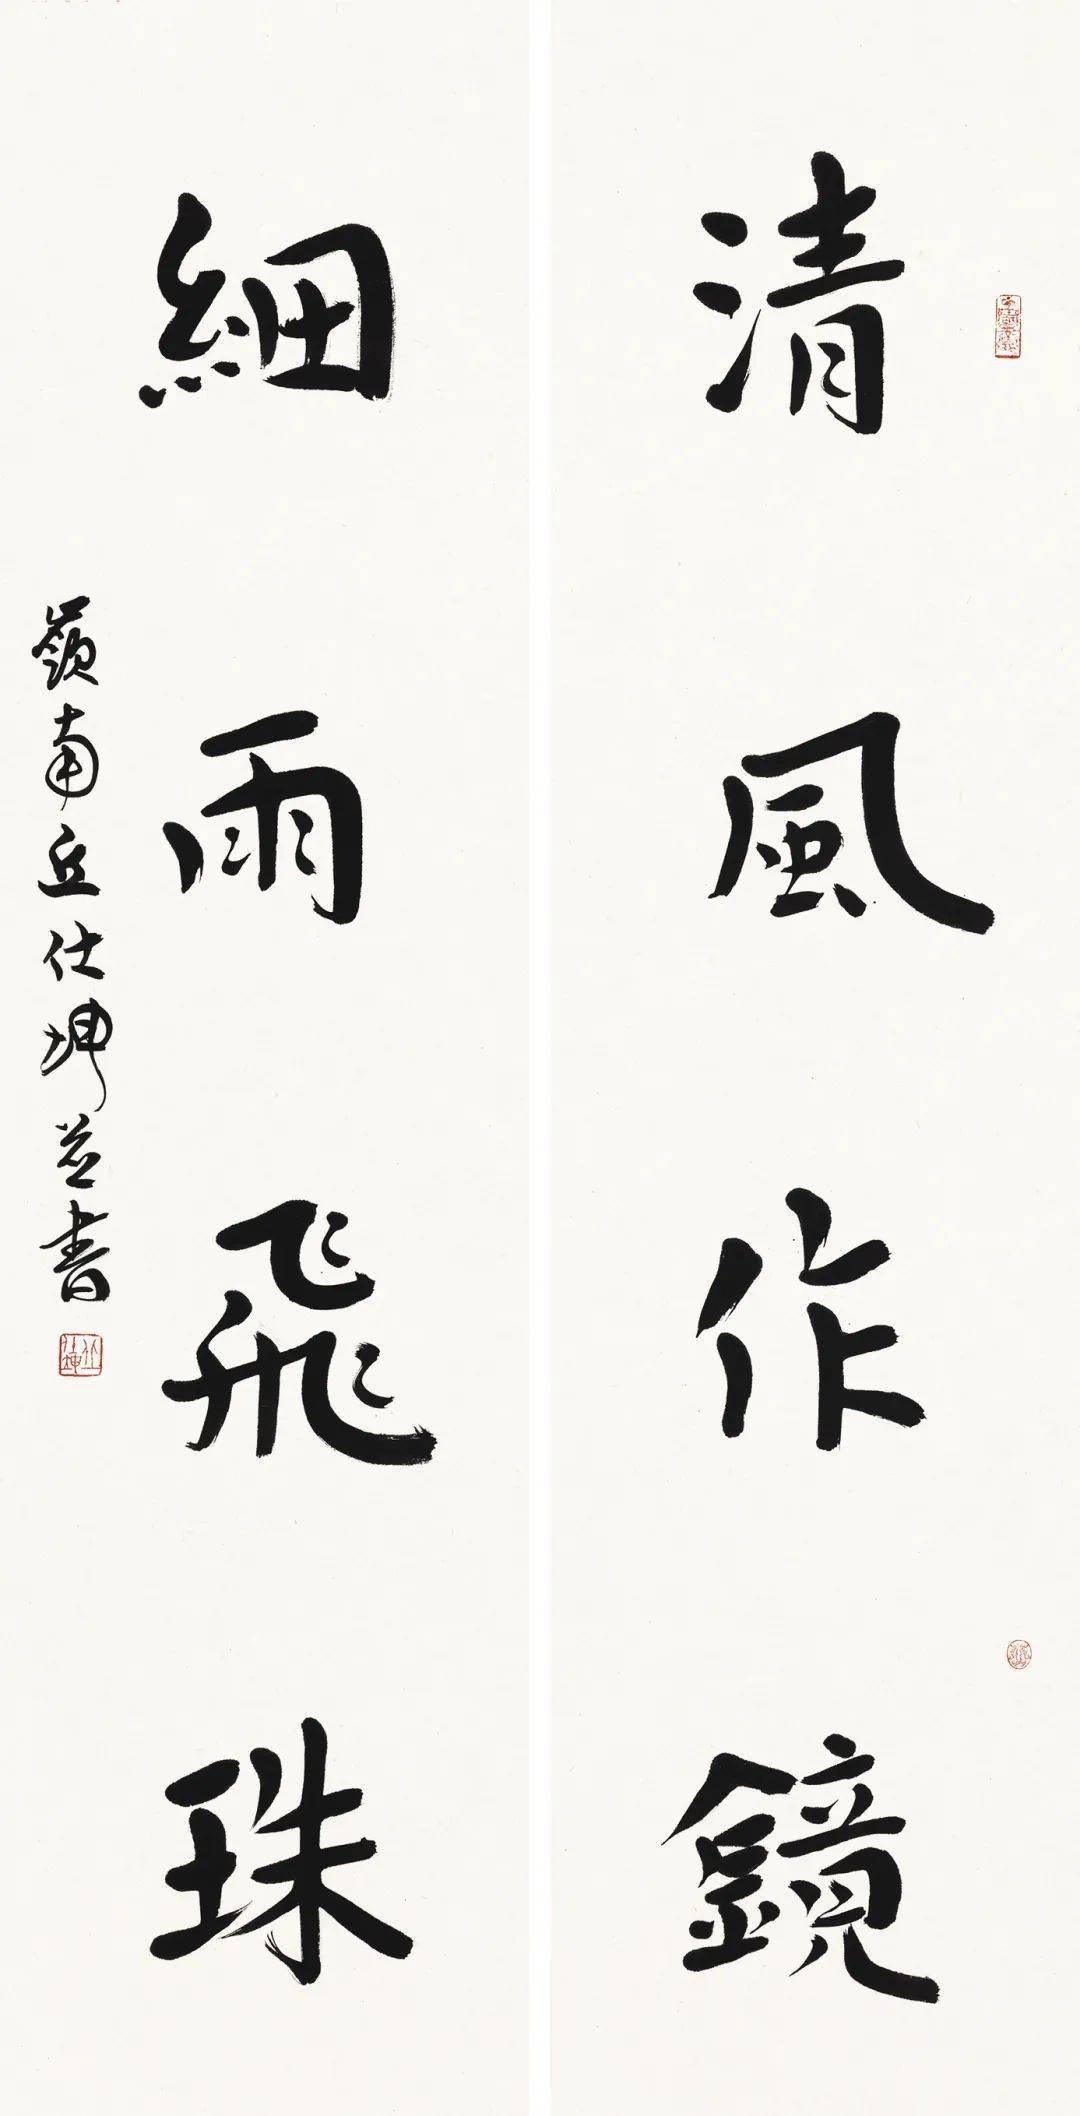 清風作鏡
細雨飛珠
嶺南丘仕坤並書